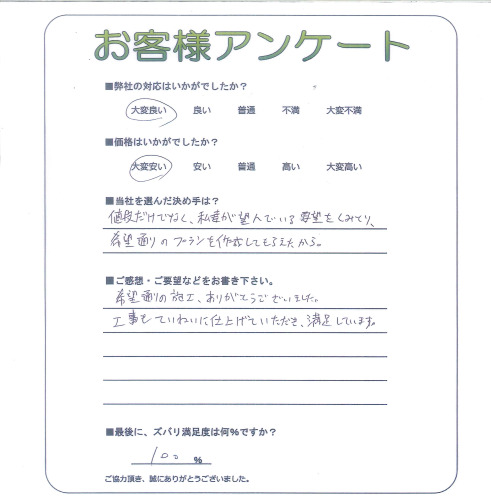 お客様アンケート
■弊社の対応はいかがでしたか？
大変良い 良い 普通 不満 大変不満
■価格はいかがでしたか？
大変安い 安い 普通 高い 大変高い
■当社を選んだ決め手は？
値段だけでなく、私達が望んでいる要望をくみとり、
希望通りのプランを作成してもらえたから。
■ご感想・ご要望などをお書き下さい。
希望通りの施工、ありがとうございました。
工事もていねいに仕上げていただき、満足しています。
■最後に、ズバリ満足度は何%ですか？
100 %
ご協力頂き、誠にありがとうございました。